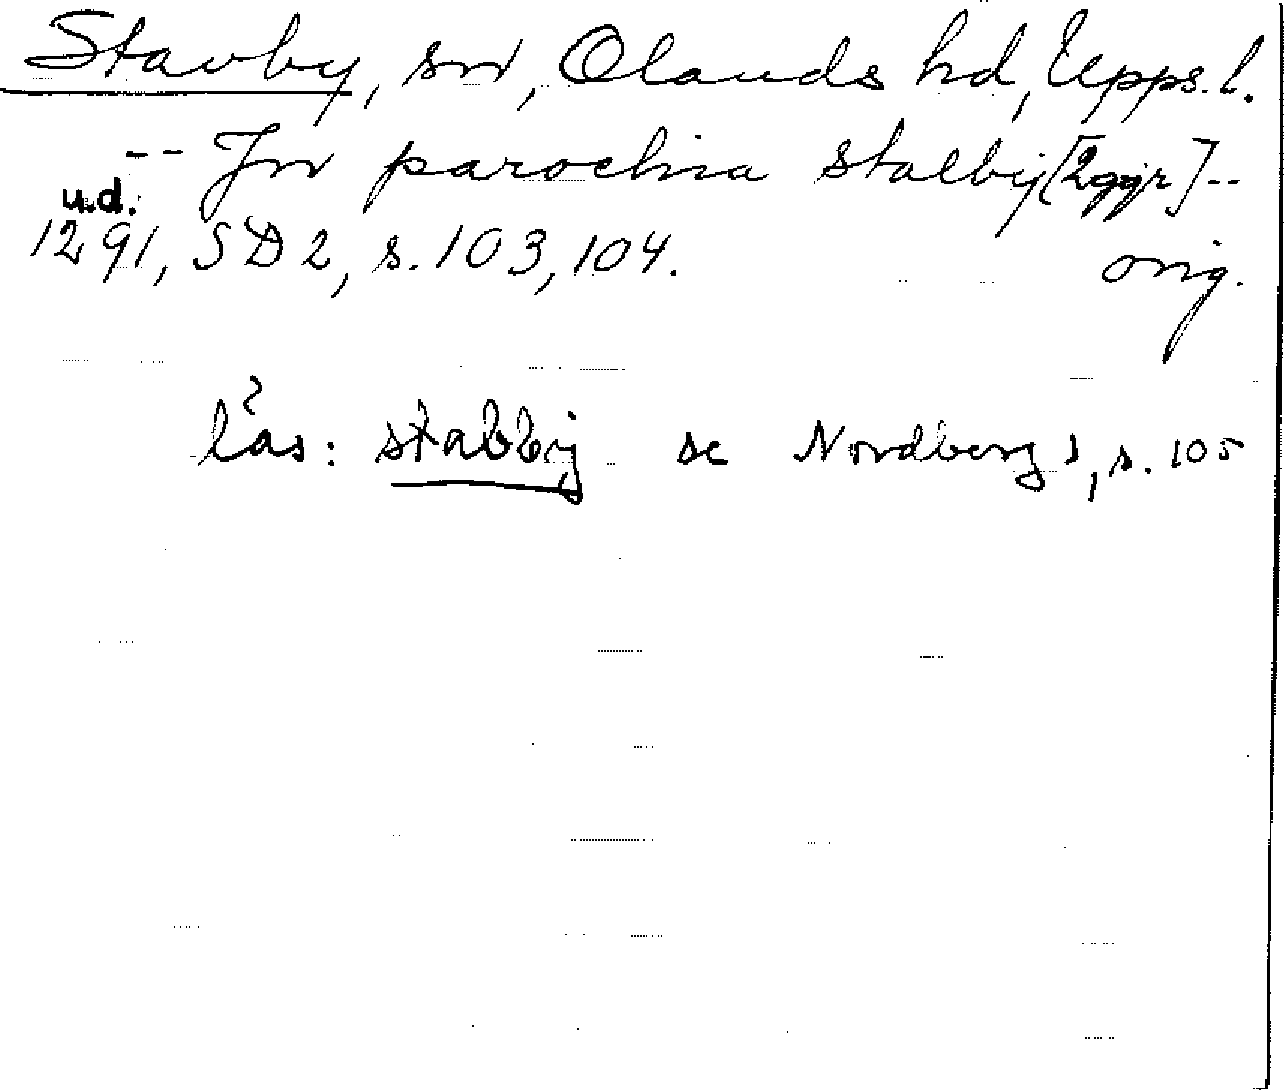 Stavby, sn, Olands hd, Upps. l.
-- In parochia stalbij [2 ggr] --
u.d.
1291, SD 2, s. 103, 104. orig.
läs: stabbij se Nordberg 1, s. 105